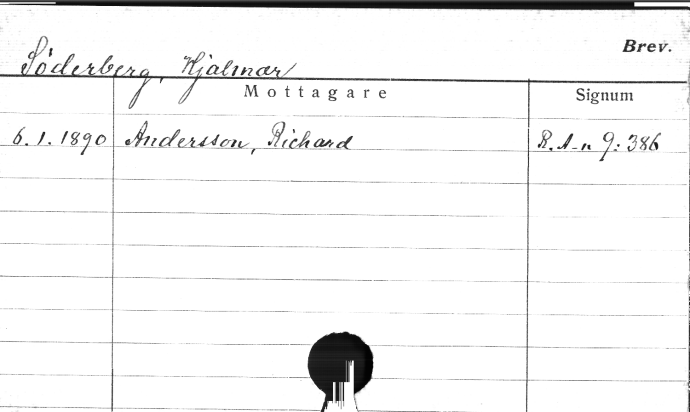 Brev.
Söderberg, Hjalmar
Mottagare Signum
6.1.1890 Andersson, Richard R. A-n 9:386